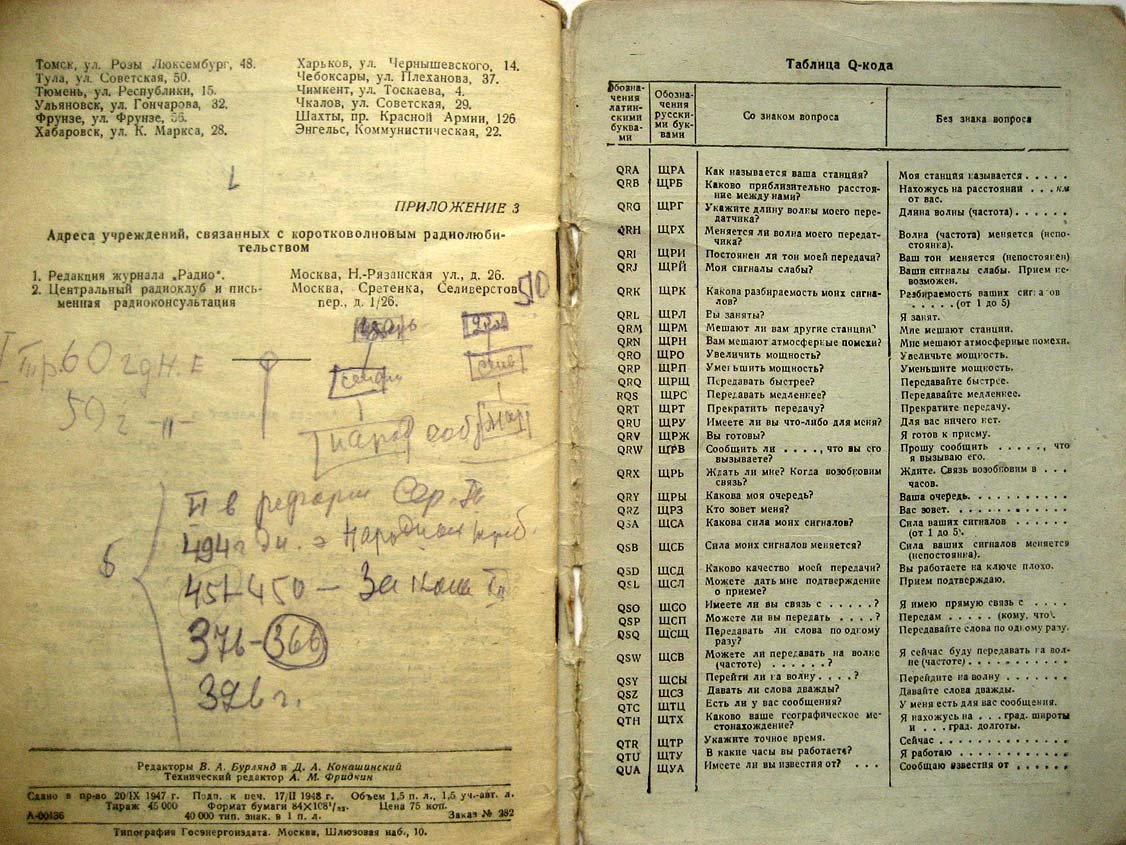 Томск, ул. Розы Люксембург, 48.
Тула, ул. Советская, 50.
Тюмень, ул. Республики, 15.
Ульяновск, ул. Гончарова, 32.
Фрунзе, ул. Фрунзе, 56.
Хабаровск, ул. К. Маркса, 28.
Харьков, ул. Чернышевского, 14.
Чебоксары, ул. Плеханова, 37.
Чимкент, ул. Тоскаева, 4.
Чкалов, ул. Советская, 29.
Шахты, пр. Красной Армии, 126
Энгельс, Коммунистическая, 22.
ПРИЛОЖЕНИЕ 3
Адреса учреждений, связанных с коротковолновым радиолюби-
тельством
1. Редакция журнала „Радио". Москва, Н.-Рязанская ул., д. 26.
2. Центральный радиоклуб и пись- Москва, Сретенка, Селиверстов
менная радиоконсультация пер., д. 1/26.
510
пр. 60 г д н. Е
50 г -II-
нар соб
II в
494 г
451-450 — Закона
376-366
326 г.
Редакторы В. А. Бурлянд и Д. А. Конашинский
Технический редактор А. М. Фридкин
Сдано в пр-во 20/IX 1947 г. Подп. к печ. 17/II 1948 г. Объем 1,5 п. л., 1,5 уч.-авт. л.
Тираж 45 000 Формат бумаги 84×108¹/₃₂. Цена 75 коп.
А-00136 40 000 тип. знак. в 1 п. л. Заказ № 282
Типография Госэнергоиздата. Москва, Шлюзовая наб., 10.
Таблица Q-кода
Обозна-
чения
латин-
скими
буква-
ми
Обозна-
чения
русски-
ми бук-
вами
Со знаком вопроса
Без знака вопроса
QRA ЩРА Как называется ваша станция? Моя станция называется . . . . .
QRB ЩРБ Каково приблизительно расстоя- Нахожусь на расстоянии . . . км
ние между нами? от вас.
QRG ЩРГ Укажите длину волны моего пере- Длина волны (частота) . . . . . .
датчика?
QRH ЩРХ Меняется ли волна моего передат- Волна (частота) меняется (непо-
чика? стоянка).
QRI ЩРИ Постоянен ли тон моей передачи? Ваш тон меняется (непостоянен)
QRJ ЩРЙ Мои сигналы слабы? Ваши сигналы слабы. Прием не-
возможен.
QRK ЩРК Какова разбираемость моих сигна- Разбираемость ваших сигналов
лов? . . . . . (от 1 до 5)
QRL ЩРЛ Вы заняты? Я занят.
QRM ЩРМ Мешают ли вам другие станции? Мне мешают станции.
QRN ЩРН Вам мешают атмосферные помехи? Мне мешают атмосферные помехи.
QRO ЩРО Увеличить мощность? Увеличьте мощность.
QRP ЩРП Уменьшить мощность? Уменьшите мощность.
QRQ ЩРЩ Передавать быстрее? Передавайте быстрее.
RQS ЩРС Передавать медленнее? Передавайте медленнее.
QRT ЩРТ Прекратить передачу? Прекратите передачу.
QRU ЩРУ Имеете ли вы что-либо для меня? Для вас ничего нет.
QRV ЩРЖ Вы готовы? Я готов к приему.
QRW ЩРВ Сообщить ли . . . ., что вы его Прошу сообщить . . . . ., что
вызываете? я вызываю его.
QRX ЩРЬ Ждать ли мне? Когда возобновим Ждите. Связь возобновим в . . .
связь? часов.
QRY ЩРЫ Какова моя очередь? Ваша очередь. . . . . . . . . .
QRZ ЩРЗ Кто зовет меня? Вас зовет. . . . . . . . . . . .
QSA ЩСА Какова сила моих сигналов? Сила ваших сигналов . . . . . .
(от 1 до 5).
QSB ЩСБ Сила моих сигналов меняется? Сила ваших сигналов меняется
(непостоянна).
QSD ЩСД Каково качество моей передачи? Вы работаете на ключе плохо.
QSL ЩСЛ Можете дать мне подтверждение Прием подтверждаю.
о приеме?
QSO ЩСО Имеете ли вы связь с . . . . .? Я имею прямую связь с . . . .
QSP ЩСП Можете ли вы передать . . . .? Передам . . . . . (кому, что).
QSQ ЩСЩ Передавать ли слова по одному Передавайте слова по одному разу.
разу?
QSW ЩСВ Можете ли передавать на волне Я сейчас буду передавать на вол-
(частоте) . . . . . .? не (частоте) . . . . . . . . . .
QSY ЩСЫ Перейти ли на волну . . . .? Перейдите на волну . . . . . . .
QSZ ЩСЗ Давать ли слова дважды? Давайте слова дважды.
QTC ЩТЦ Есть ли у вас сообщения? У меня есть для вас сообщения.
QTH ЩТХ Каково ваше географическое ме- Я нахожусь на . . . град. широты
стонахождение? и . . . град. долготы.
QTR ЩТР Укажите точное время. Сейчас . . . . . . . . . . . . .
QTU ЩТУ В какие часы вы работаете? Я работаю . . . . . . . . . . .
QUA ЩУА Имеете ли вы известия от? . . . Сообщаю известия от . . . . . .